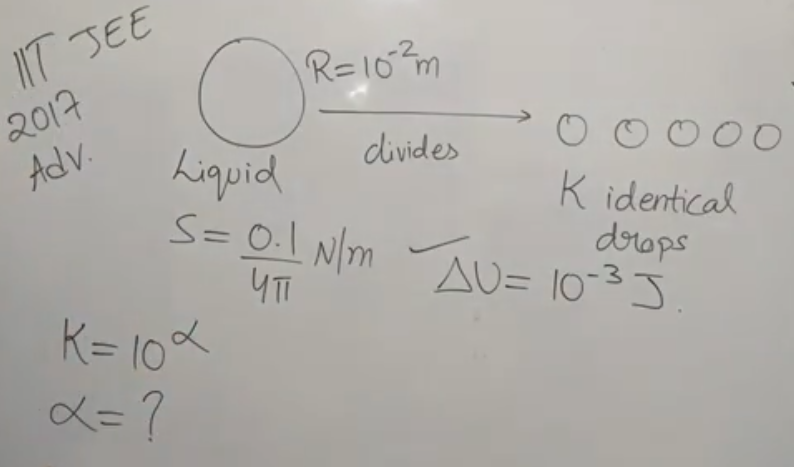 IIT JEE
2017
Adv.
R=10⁻²m
divides
Liquid
K identical
drops
S = 0.1/4π N/m
ΔU = 10⁻³ J.
K = 10^α
α = ?